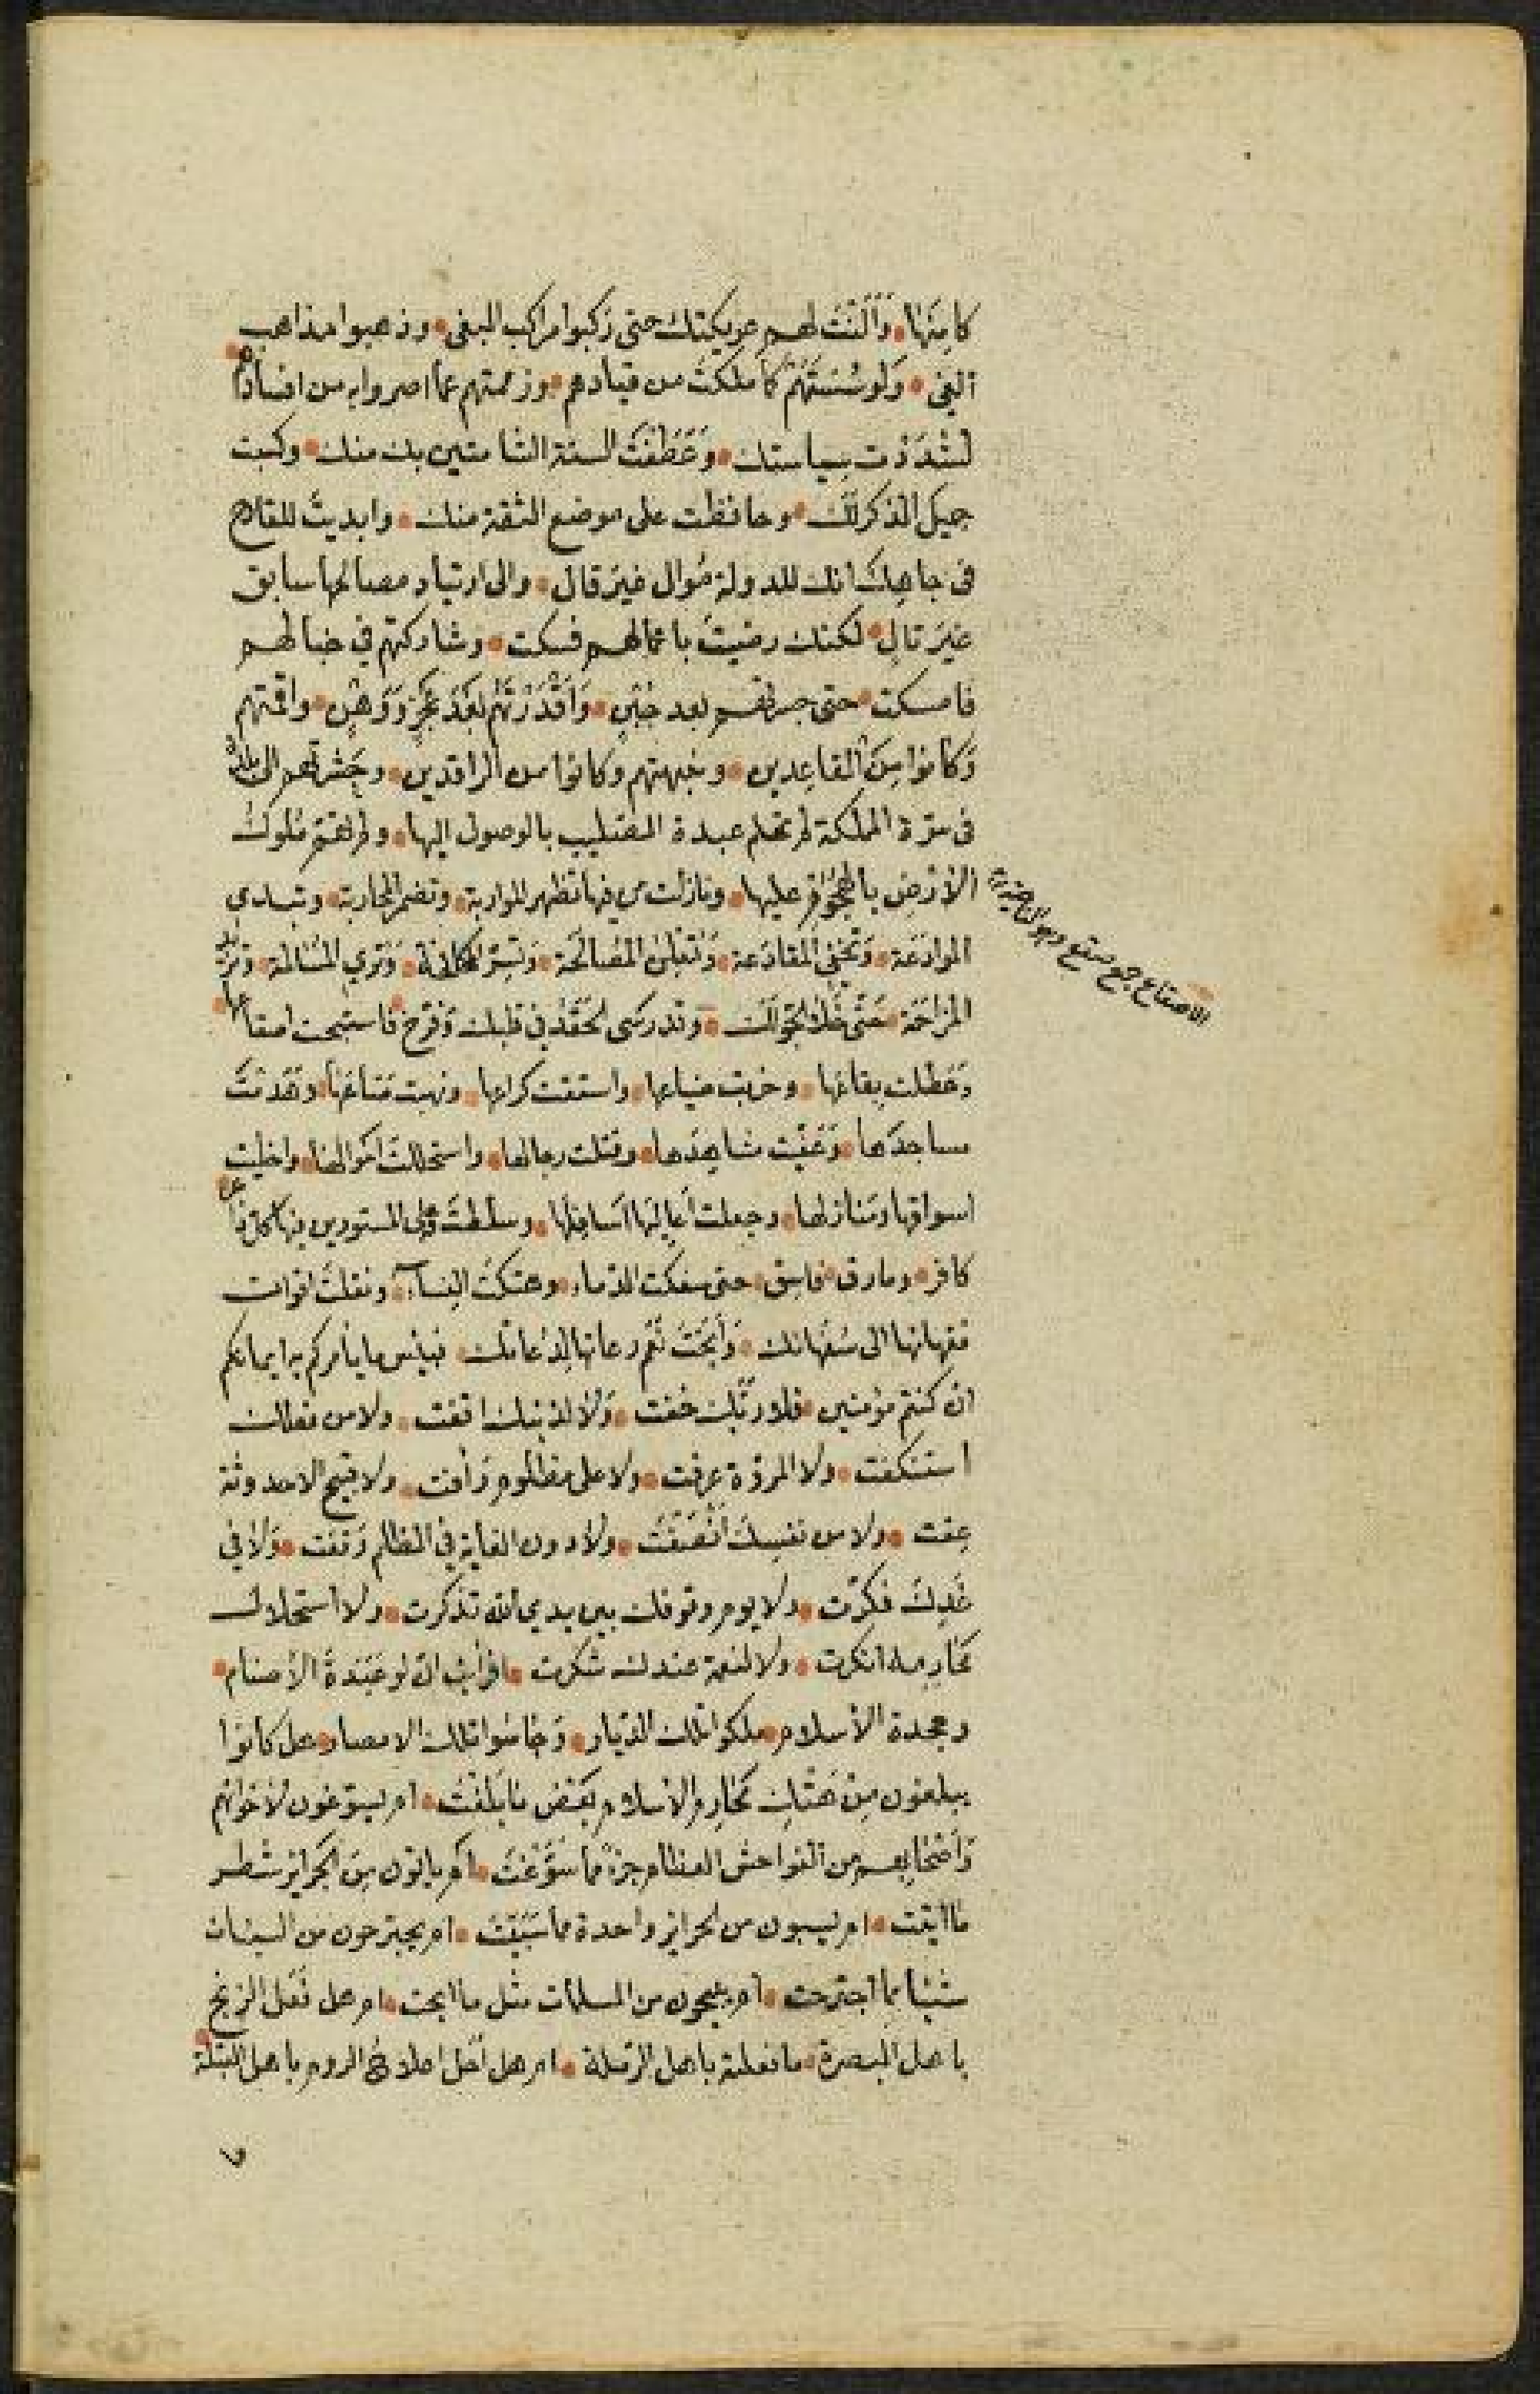 كامنها وألنت لهم عريكتك حتى ركبوا مراكب البغى وذهبوا مذاهب
الغى ولو سستهم كما ملكت من قيادهم وزممتهم عما اصروا به من افسادهم
لشددت سياستك وعطفت السنة الشامتين بك منك وكسبت
جميل الذكر لك وحافظت على موضع الثقة منك وابديت للقادح
فى جاهك انك للدولة موال غير قال والى ارتياد مصالحها سابق
غير تال لكنك رضيت باعمالهم فسكت وشاركتهم في خبالهم
فامسكت حتى جسرتهم بعد جبن واقدرتهم بعد عجز ووهن واقمتهم
وكانوا من القاعدين ونبهتهم وكانوا من الراقدين وجشرتهم الى بلدة
فى سرة المملكة لم تحلم عبدة الصليب بالوصول اليها ولم تهم ملوك
الارض بالهجوم عليها ونازلت من فيها تظهر المواربة وتضمر المحاربة وتبدي
الموادعة وتخفي المقادعة وتعلن المصالحة وتسر المكافحة وتري المسالمة وتريد
المزاحمة حتى خلا الجو لك وقد رسى الحقد في قلبك وفرخ فاستبحت اصقاعها
وعطلت بقاعها وخربت ضياعها واستقت كراعها ونهبت متاعها وهدمت
مساجدها وعفيت مشاهدها وقتلت رجالها واستحللت اموالها واخليت
اسواقها ومنازلها وجعلت أعاليها أسافلها وسلطت على المستورين بها كل
كافر ومارق فاسق حتى سفكت الدماء وهتكت النساء ونقلت اقوات
فقهائها الى سفهائك وأبحت نعم رعاتها لذعاتك فبئس ما يأمركم به ايمانكم
ان كنتم مؤمنين فلا ربك خفت ولا لذنبك اقفت ولا من فعالك
استنكفت ولا المروة عرفت ولا على مظلوم رأفت ولا قبيح الاحدوثة
عفت ولا من نفسك أنصفت ولا دون الغاية في المظالم وقفت ولا في
غدك فكرت ولا يوم وقوفك بين يدي الله تذكرت ولا استحلالك
محارمه انكرت ولا لنعمة عندك شكرت افرأيت ان لو عبدة الأصنام
وجحدة الأسلام ملكوا تلك الديار وجاسوا تلك الامصار هل كانوا
يبلغون من هتك محارم الاسلام بعض ما بلغت ام يسوغون لاخوانهم
وأصحابهم من الفواحش العظام جزءا مما سوغت ام يأتون من الجرائر شطر
ما اتيت ام يسبون من الحرائر واحدة مما سبيت ام يجترحون من السيئات
شيئا مما اجترحت ام يبيحون من المسلمات مثل ما ابحت ام هل فعل الزنج
باهل البصرة ما فعلته باهل الرملة ام هل أحل اعلاج الروم باهل القبلة
الاصقاع جمع صقع وهو الناحية